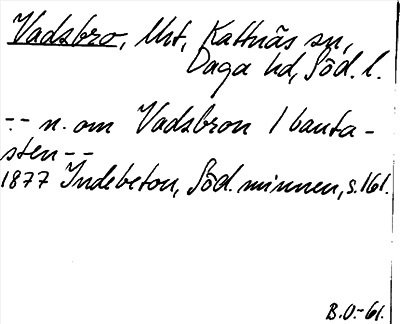 Vadsbro, Uht, Kattnäs sn,
Daga hd, Söd. l.
-- n. om Vadsbron 1 bauta-
sten --
1877 Indebetou, Söd. minnen, s. 161.
B.O.-61.